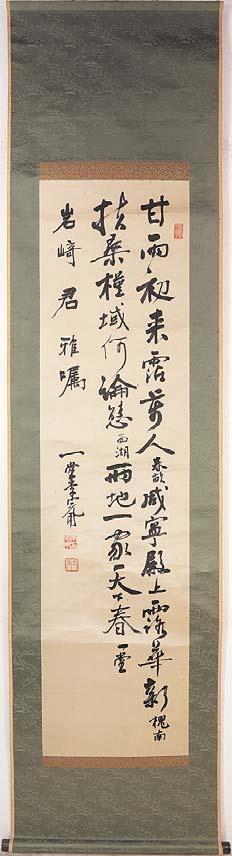 甘雨初来霑萬人春畝咸寧殿上露華新槐南
扶桑槿域何論態西湖兩地一家天下春一堂
岩崎君雅嘱 一堂李完用